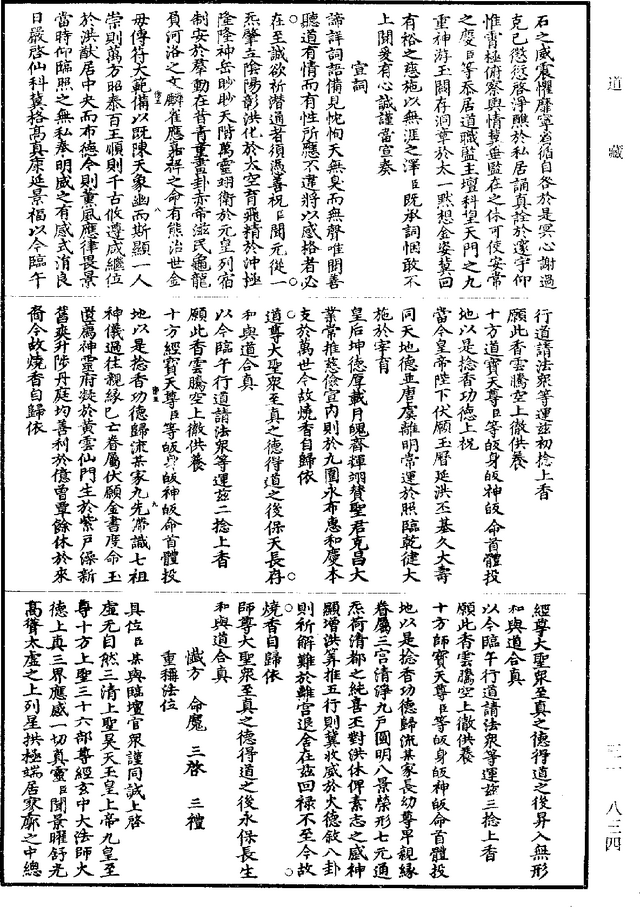 道藏
三一 八三四
石之威震懼靡寧省循自咎於是冥心謝過
克己懲愆啓淨醮於私居誦真詮於邃宇仰
惟霄極俯察輿情冀垂監在之休可使安常
之慶臣等忝居道職監玉壇科望天門之九
重神游玉闕存洞章於太一默想金姿冀回
有裕之慈施以無涯之澤臣既承詞悃敢不
上聞爰有心誠謹當宣奏
宣詞
諦詳詞語備見忱恂天無臭而無聲唯聞善
聽道有情而有性所應不違將以感格者必
在至誠欲祈潛通者須憑善祝臣聞元從一
炁肇立陰陽彰洪化於太空育飛精於沖極
隆隆神岳眇眇天階萬靈翊衛於元皇列宿
制安於羣動在昔青童畫卦赤帝滋民龜龍
負河洛之文麟雀應嘉祥之命有熊治世金
母傳符大範備以既陳天象幽而斯顯一人
崇則萬方昭泰百王順則千古攸遵咸繼位
於洪猷居中央而布德令則薰風應律畏景
當時仰臨照之無私奉明威之有感式消良
日嚴啓仙科冀格高真康延景福以今臨午
行道請法衆等運茲初捻上香
願此香雲騰空上徹供養
十方道寶天尊臣等皈身皈神皈命首體投
地以是捻香功德上祝
當今皇帝陛下伏願玉曆延洪丕基久大壽
同天地德並唐虞離明常運於照臨乾健大
施於字育
皇后坤德厚載月魄齊輝翊贊聖君克昌大
業常推慈儉宣內則於九圍永布惠和慶本
支於萬世今故燒香自歸依
道尊大聖衆至真之德得道之後保天長存
和與道合真
以今臨午行道請法衆等運茲二捻上香
願此香雲騰空上徹供養
十方經寶天尊臣等皈身皈神皈命首體投
地以是捻香功德歸流某家九先滯識七祖
神儀過往親緣已亡眷屬伏願金書度命玉
匱薦神靈府凝於黃雲仙門生於紫戶澡新
舊爽升陟丹庭均善利於億曾覃餘休於來
裔今故燒香自歸依
經尊大聖衆至真之德得道之後昇入無形
和與道合真
以今臨午行道請法衆等運茲三捻上香
願此香雲騰空上徹供養
十方師寶天尊臣等皈身皈神皈命首體投
地以是捻香功德歸流某家長幼尊卑親緣
眷屬三宮清淨九戶圓明八景榮形七元通
炁荷清都之純喜丕對洪休俾素志之感神
願增洪筭推五行則冀收威於火德敘八卦
則祈解難於離宮退舍在茲回祿不至今故
燒香自歸依
師尊大聖衆至真之德得道之後永保長生
和與道合真
懺方 命魔 三啓 三禮
重稱法位
具位臣某與臨壇官衆謹同誠上啓
虛无自然三清上聖昊天玉皇上帝九皇至
尊十方上聖三十六部尊經玄中大法師火
德上真三界應感一切真靈臣聞景曜舒光
高聳太虛之上列星拱極端居寥廓之中總